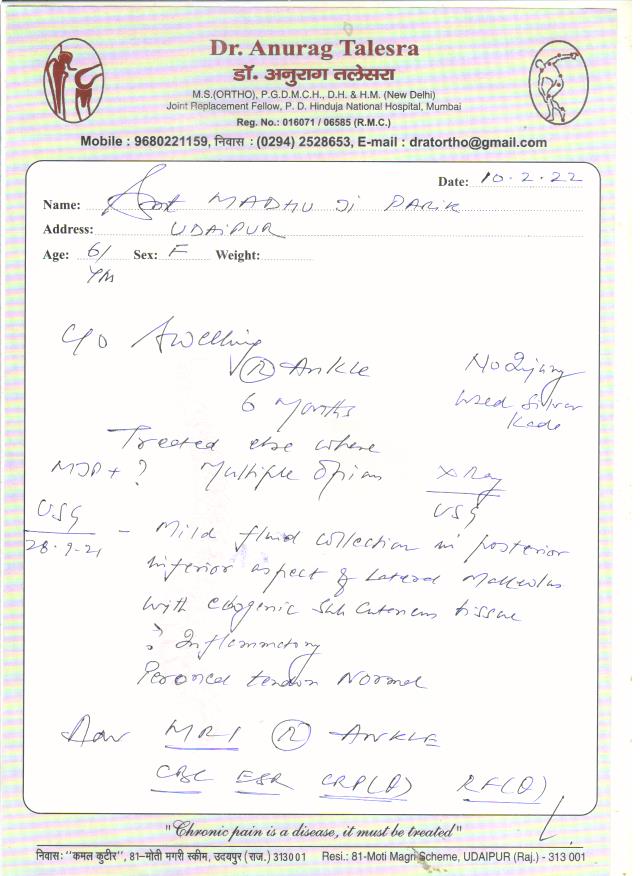 Dr. Anurag Talesra
डॉ. अनुराग तलेसरा
M.S.(ORTHO), P.G.D.M.C.H., D.H. & H.M. (New Delhi)
Joint Replacement Fellow, P. D. Hinduja National Hospital, Mumbai
Reg. No.: 016071 / 06585 (R.M.C.)
Mobile : 9680221159, निवास : (0294) 2528653, E-mail : dratortho@gmail.com
Date: 10.2.22
Name: MADHU Ji PARIK
Address: UDAIPUR
Age: 61 Sex: F Weight:
c/o Swelling
(R) ANKLE
6 Months
No Injury
Used Silver
Kade
Treated else where
? Multiple Opinion
X Ray
USG
USG
28.9.21 - Mild fluid collection in posterior
inferior aspect of Lateral Malleolus
with echogenic Sub Cutaneous tissue
? Inflammatory
Peroneal tendon Normal
Adv MRI (R) ANKLE
CBC ESR CRP(Q) RF(Q)
"Chronic pain is a disease, it must be treated"
निवास: "कमल कुटीर", 81-मोती मगरी स्कीम, उदयपुर (राज.) 313001 Resi.: 81-Moti Magri Scheme, UDAIPUR (Raj.) - 313 001